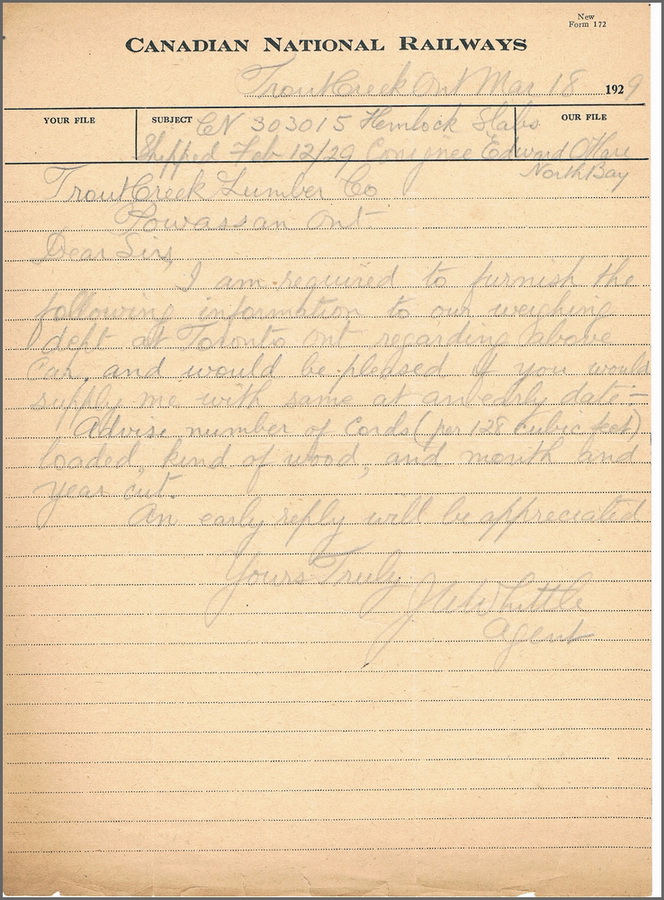 New
Form 172
CANADIAN NATIONAL RAILWAYS
Trout Creek Ont Mar 18 1929
YOUR FILE
SUBJECT CN 303015 Hemlock Slabs
OUR FILE
Shipped Feb 12/29 Consignee Edward O'Hare
North Bay
Trout Creek Lumber Co
Powassan Ont.
Dear Sir,
I am required to furnish the
following information to our weighing
dept at Toronto Ont regarding above
Car, and would be pleased if you would
supply me with same at an early date -
Advise number of Cords (per 128 cubic feet)
loaded, kind of wood, and month and
year cut.
An early reply will be appreciated
Yours Truly
Whittle
Agent